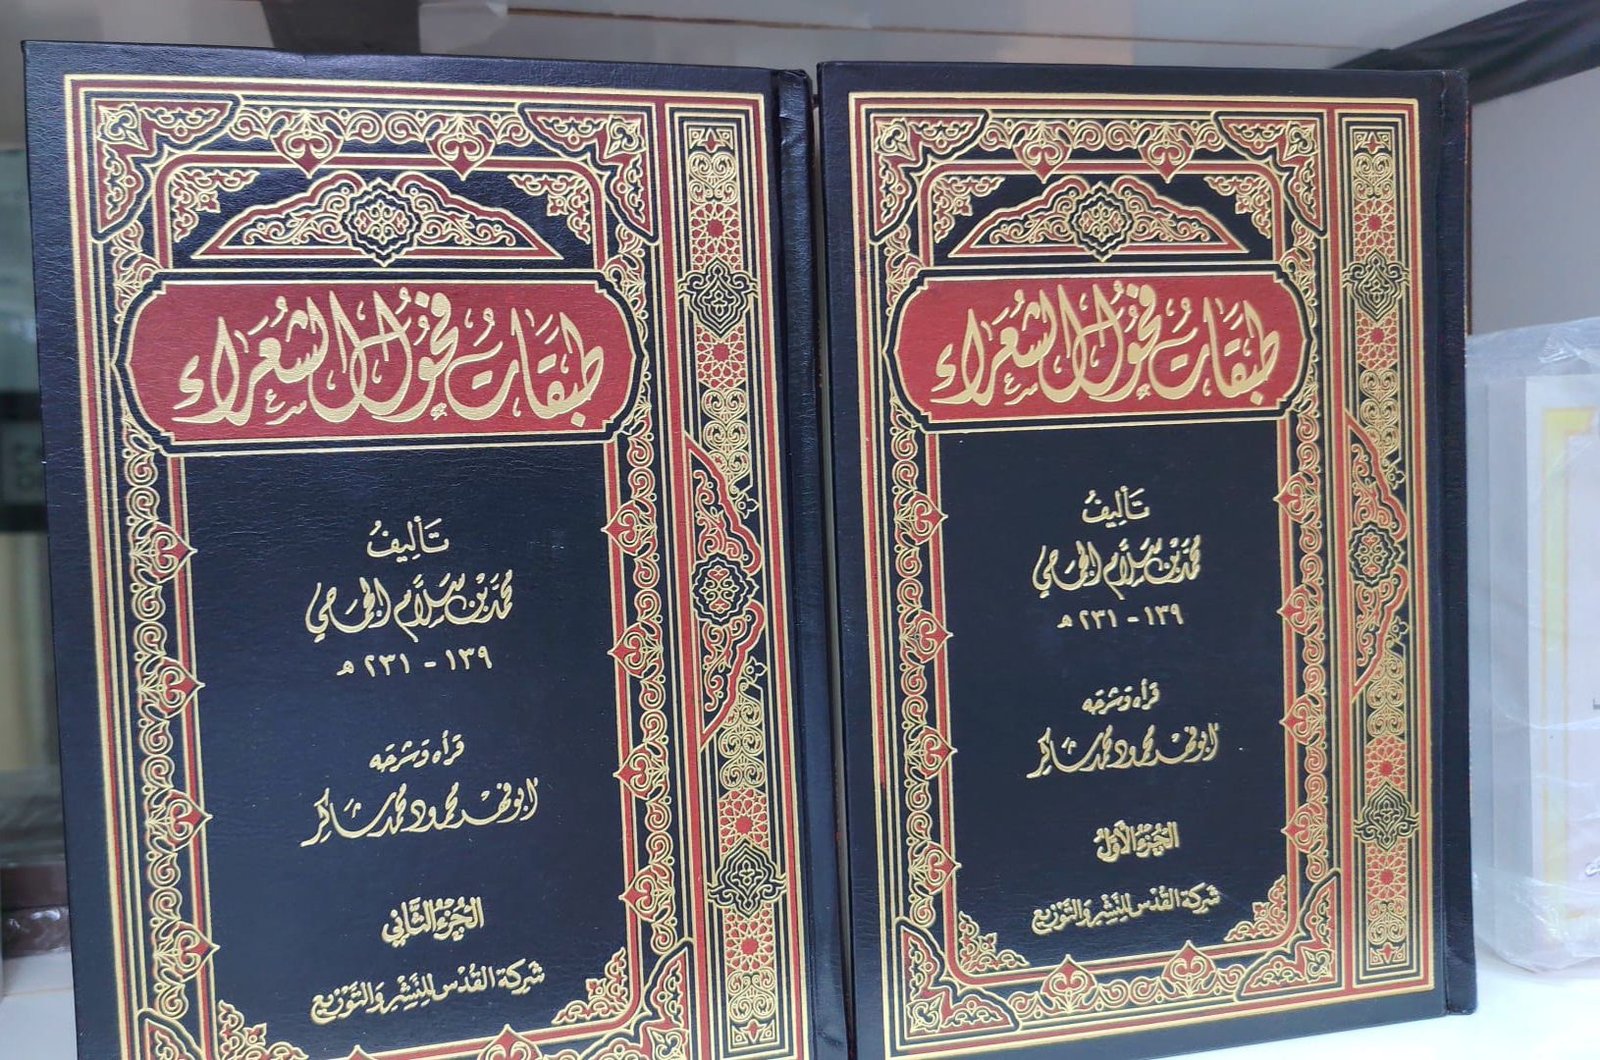 طبقات فحول الشعراء
تأليف
محمد بن سلام الجمحي
١٣٩ - ٢٣١ هـ
قرأه وشرحه
أبو فهر محمود محمد شاكر
الجزء الأول
شركة القدس للنشر والتوزيع
طبقات فحول الشعراء
تأليف
محمد بن سلام الجمحي
١٣٩ - ٢٣١ هـ
قرأه وشرحه
أبو فهر محمود محمد شاكر
الجزء الثاني
شركة القدس للنشر والتوزيع